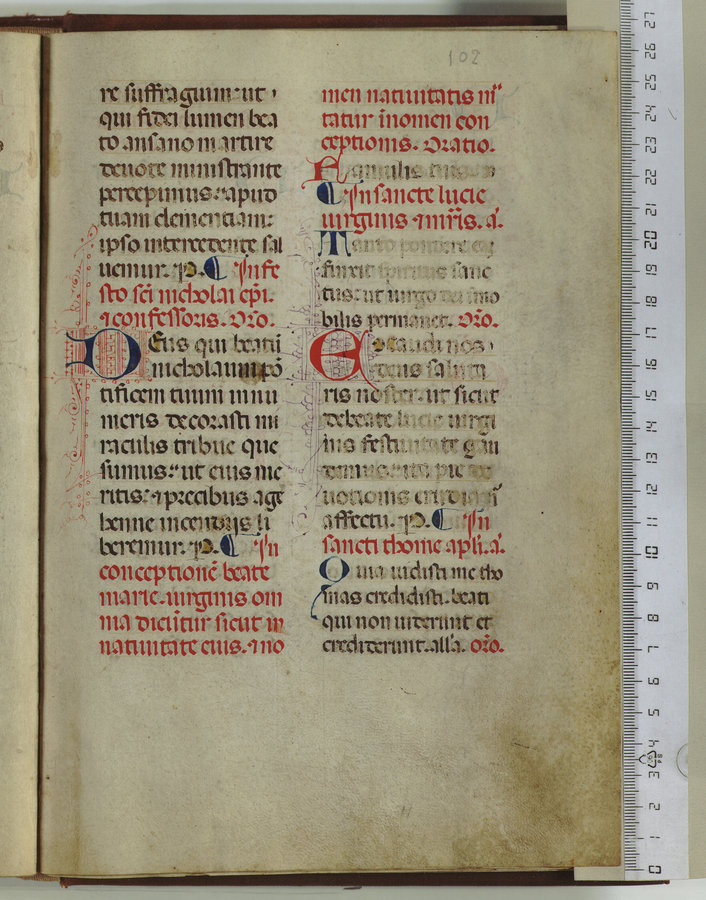 102
re suffragium: ut
qui fidei lumen bea
to ansano martire
deuote ministrante
percepimus: apud
tuam clementiam:
ipso intercedente sal
uemur. P. In fe
sto sci nicholai epi.
⁊ confessoris. Oro.
Deus qui beatū
nicholaum pō
tificem tuum innu
meris decorasti mi
raculis tribue que
sumus: ut eius me
ritis: ⁊ precibus a gehenne incendijs li
beremur. P. In
conceptionē beate
marie. uirginis om
nia dicūtur sicut in
natiuitate eius. ⁊ no
men natiuitatis m̄
tatur īnomen con
ceptionis. Oratio.
Famulis
In sancte lucie
uirginis ⁊ mr̄is. a.
Tanto pondere
fixit spiritus sanc
tus: ut uirgo dei īmo
bilis permanet. Oro.
Exaudi nos
deus saluta
ris noster. ut sicut
de beate lucie uirgi
nis festiuitate gau
demus: ita pie de
uotionis
affectu. P. In
sancti thome apli. a.
Quia uidisti me tho
mas credidisti. beati
qui non uiderunt et
crediderunt. alla. oro.